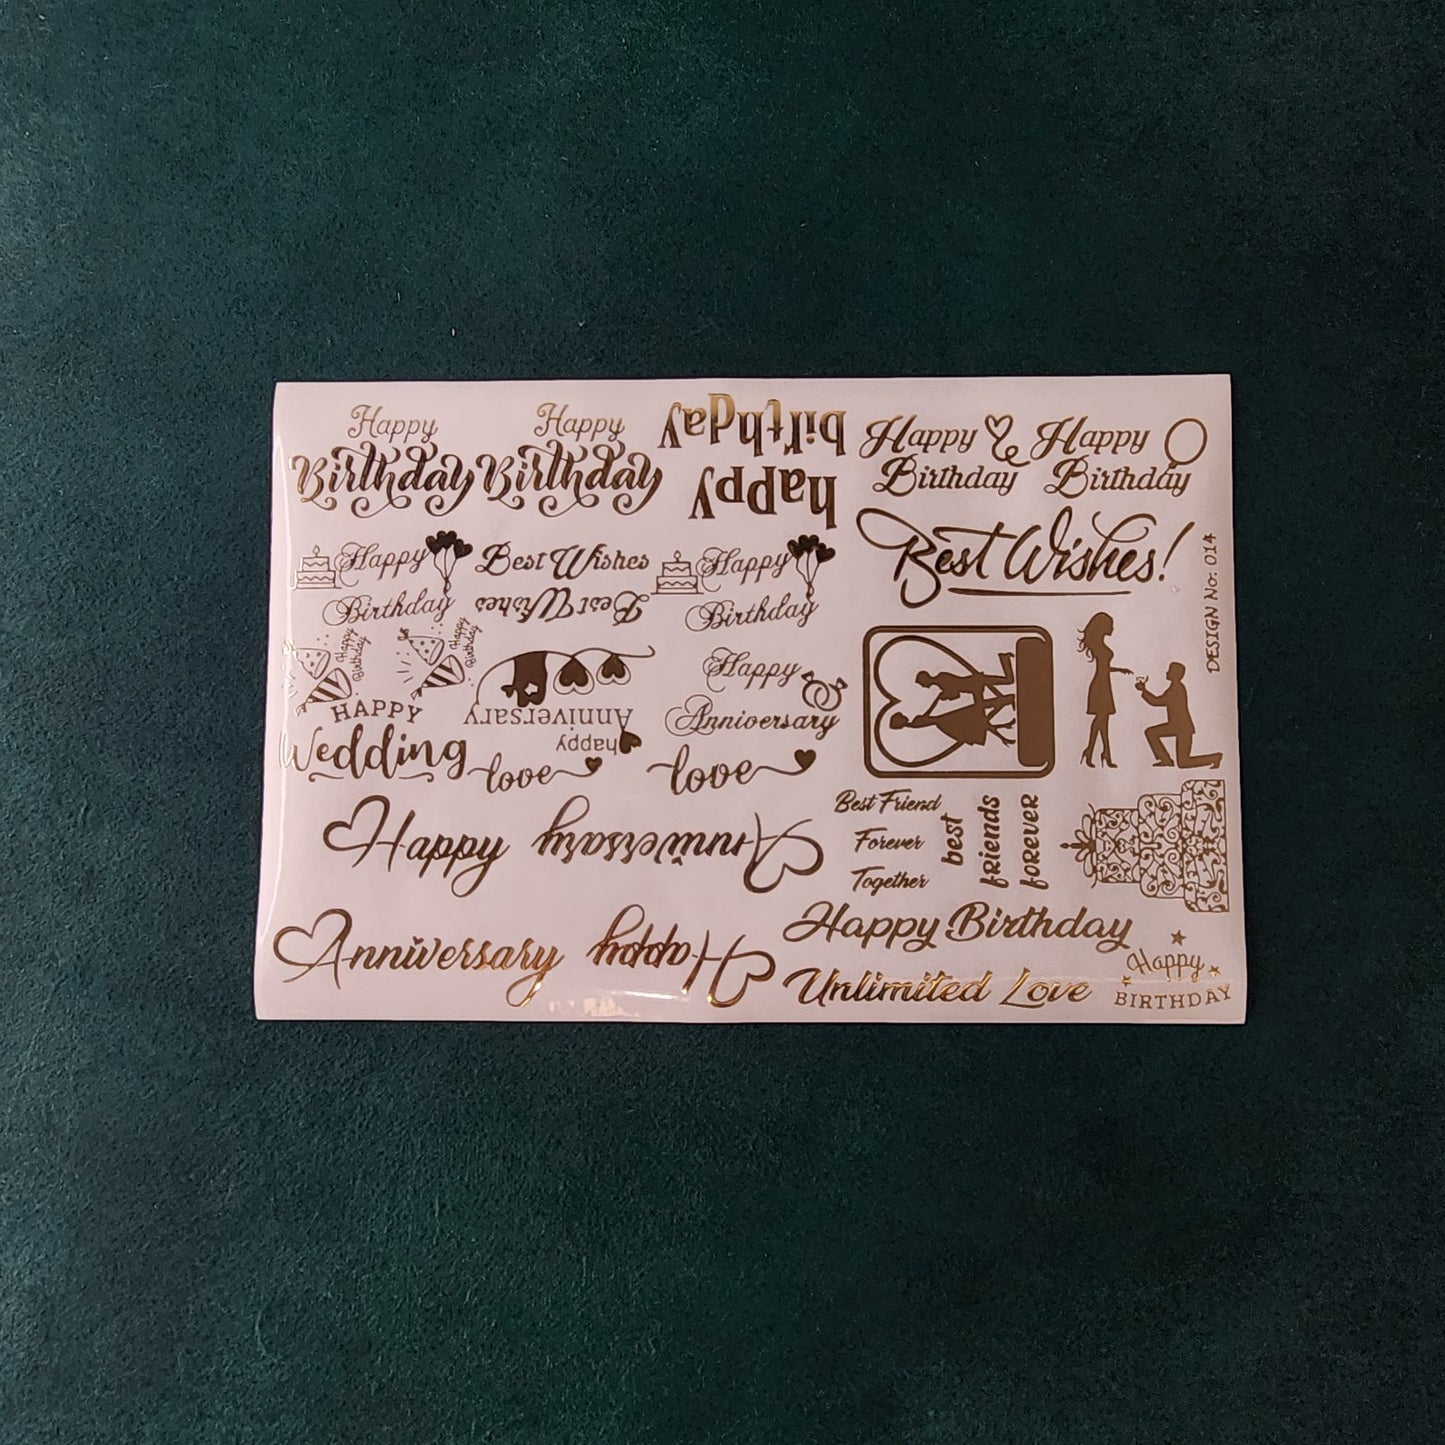 Happy
Birthday
Happy
Birthday
happy
birthday
Happy
Birthday
Happy
Birthday
Happy
Birthday
Best Wishes
Best Wishes
Happy
Birthday
Best Wishes!
DESIGN No: 014
Happy
Birthday
Happy
Birthday
HAPPY
Wedding
happy
Anniversary
Happy
Anniversary
love
love
Happy
Anniversary
Best Friend
Forever
Together
best
friends
forever
Anniversary
Happy
Happy Birthday
Unlimited Love
Happy
BIRTHDAY